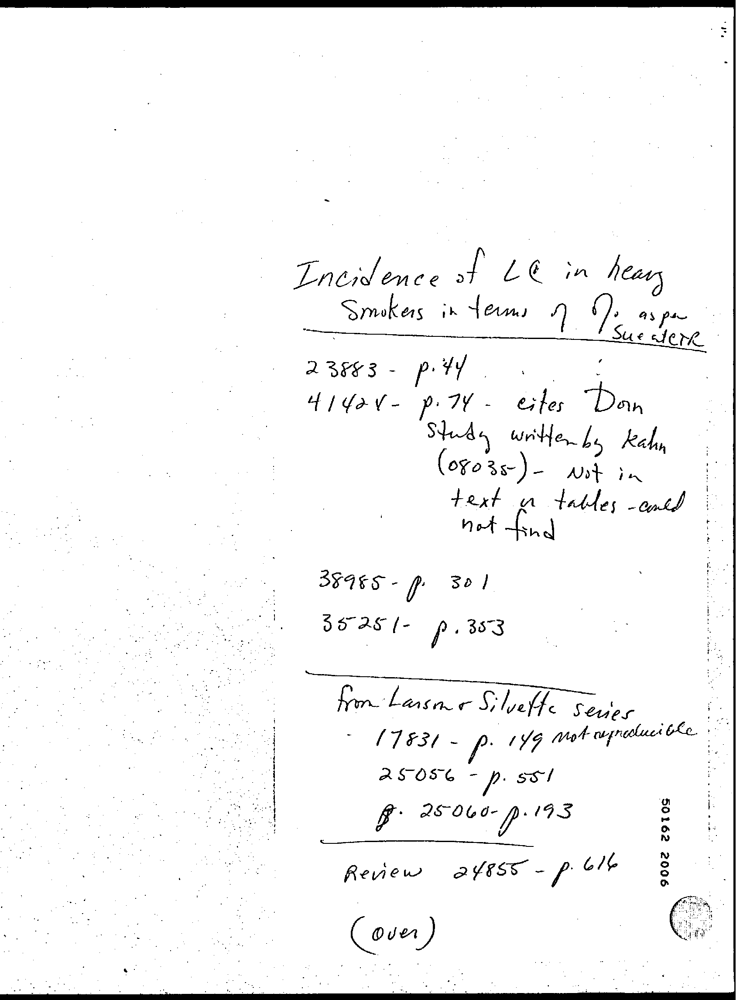 Incidence of LC in heavy
Smokers in terms of % as per
23883 - p. 44
41424 - p. 74 - cites Dorn
Study written by Kahn
(08035) - Not in
text or tables - could
not find
38985 - p. 301
35251 - p. 353
from Larson & Silvette series
17831 - p. 149 not reproducible
25056 - p. 551
25060 - p. 193
Review 24855 - p. 616
(over)
50162 2006